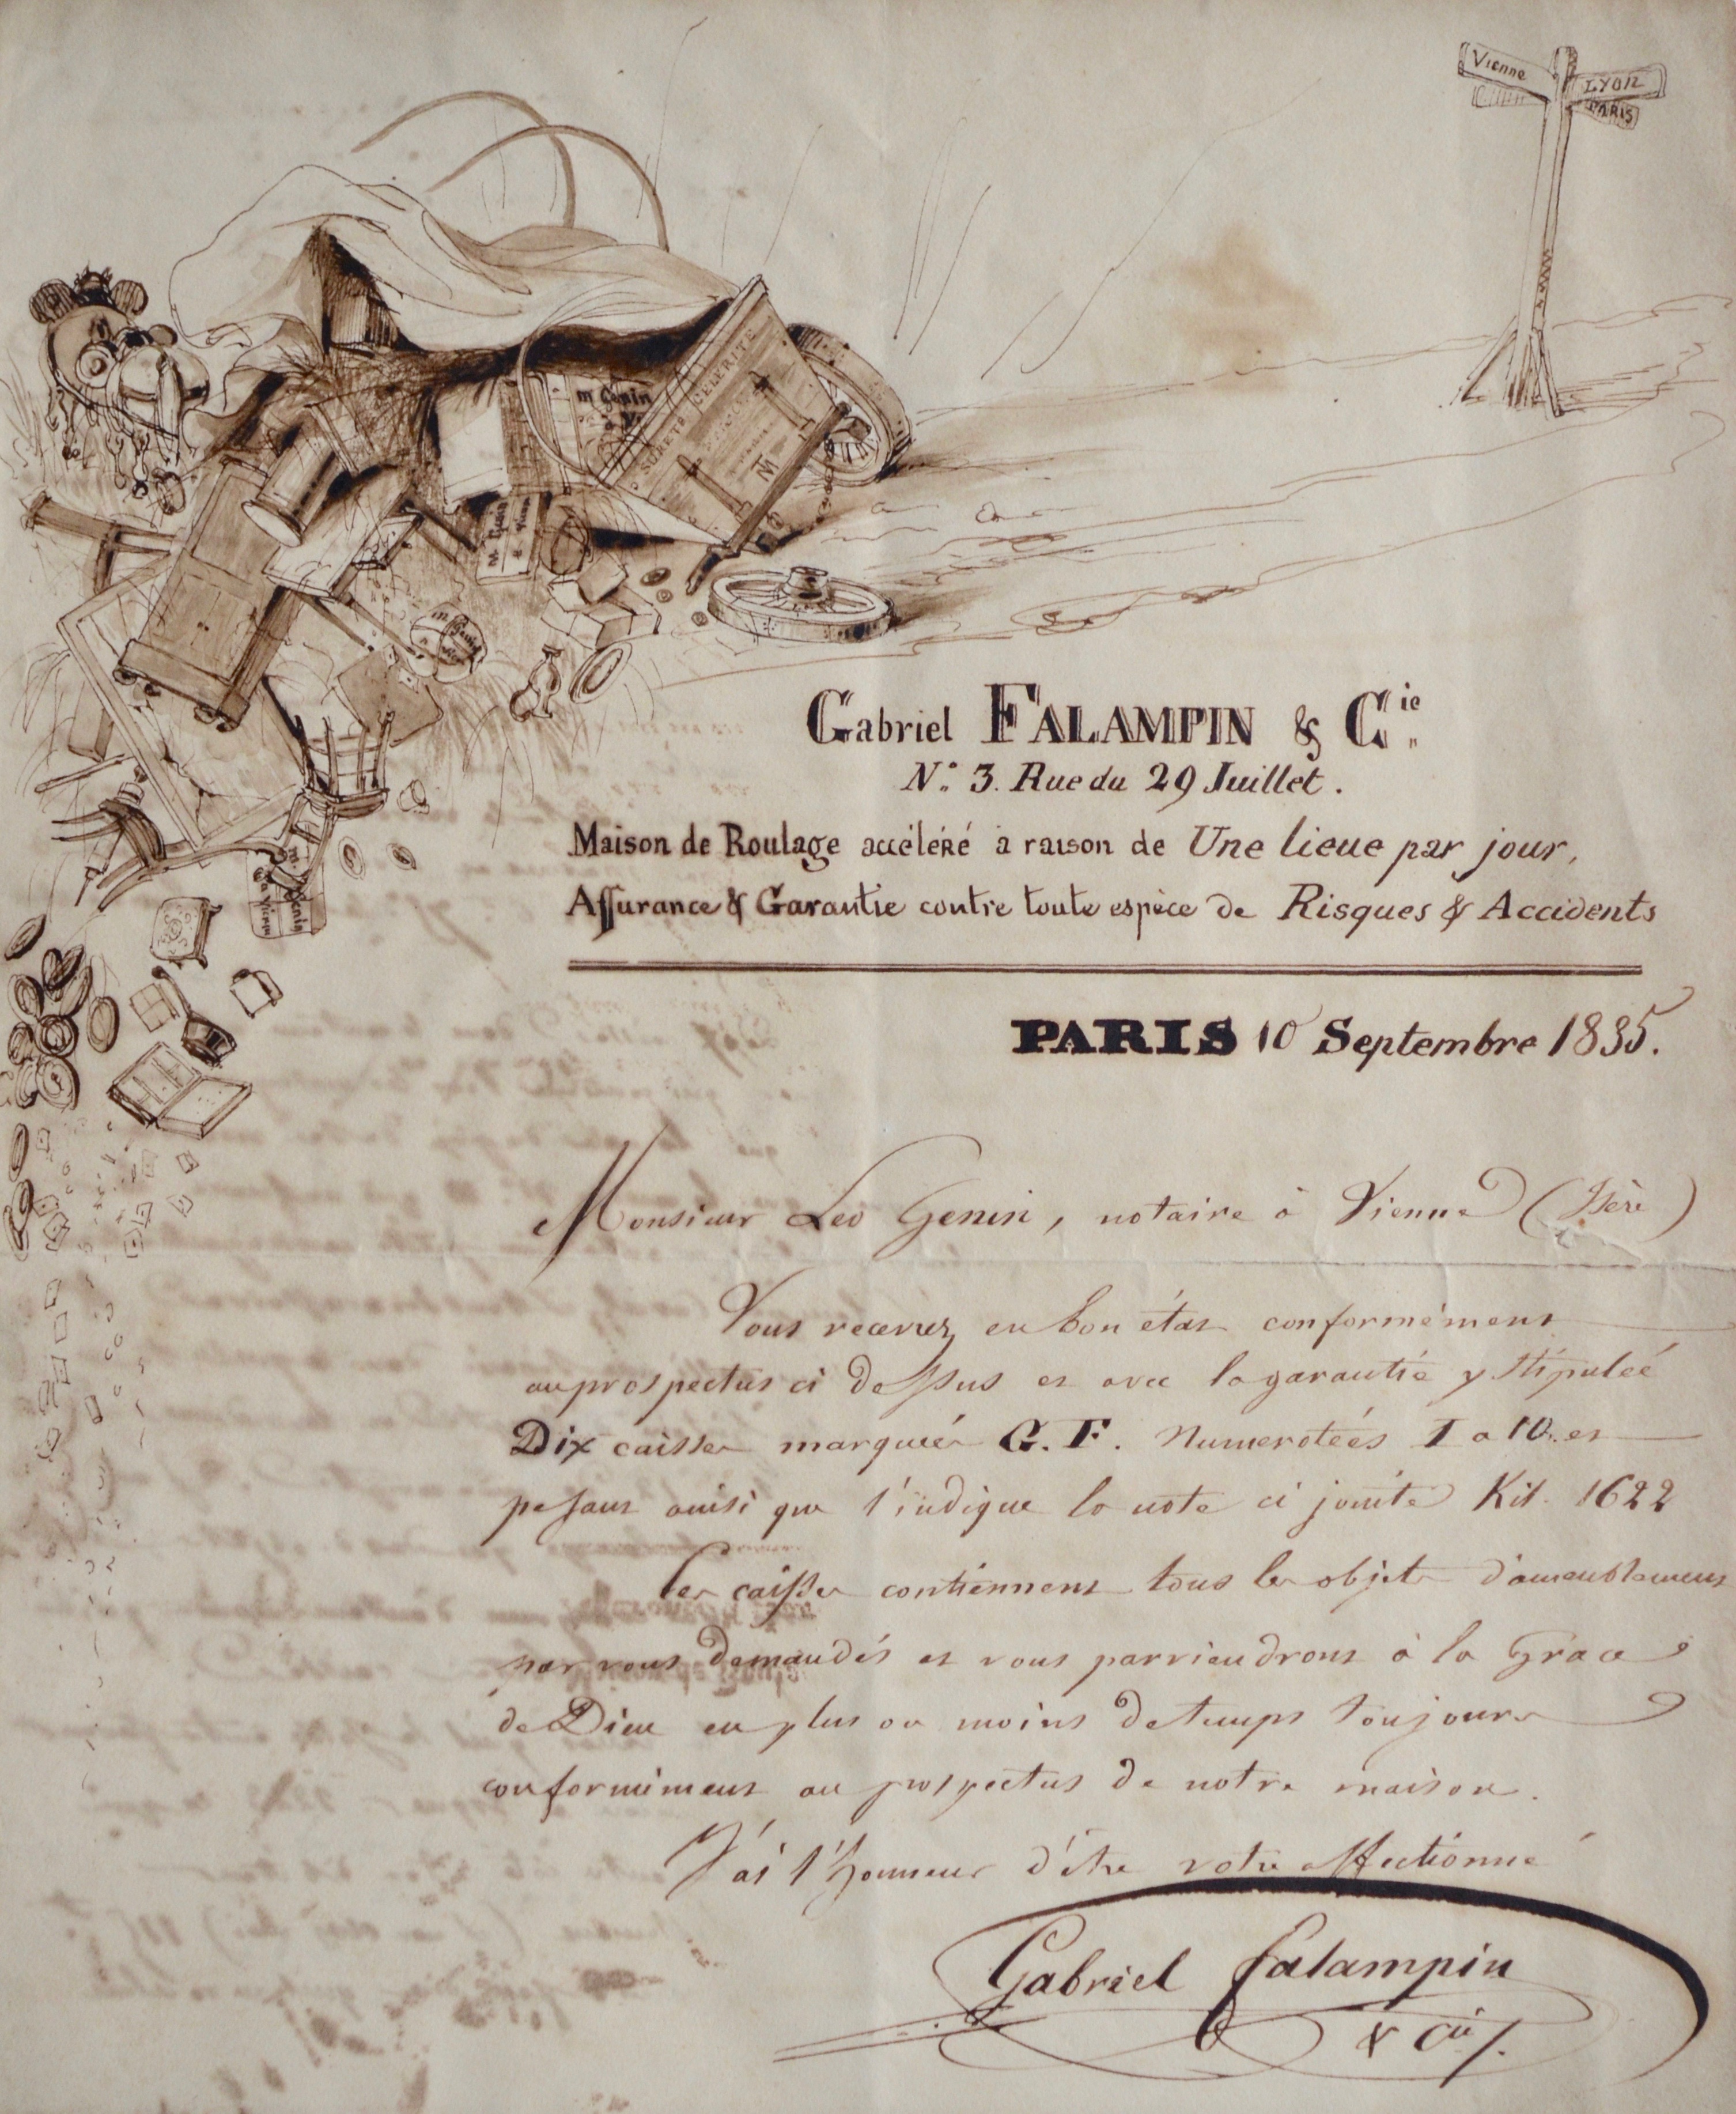 Vienne
LYON
PARIS
SURETÉ CÉLÉRITÉ
m Genin
à Vi
M Genin
à Vienne
m Genin
m Genin
à Vienne
Gabriel FALAMPIN & Cie
N° 3. Rue du 29 Juillet.
Maison de Roulage accéléré à raison de Une lieue par jour,
Assurance & Garantie contre toute espèce de Risques & Accidents
PARIS 10 Septembre 1835.
Monsieur Leo Genin, notaire à Vienne (Isère)
Vous recevrez en bon état conformément
au prospectus ci dessus et avec la garantie y stipulée
Dix caisses marquées G. F. Numerotées 1 a 10. et
pesant ainsi que l'indique la note ci jointe Kil. 1622
Ces caisses contiennent tous les objets d'ameublement
par vous demandés et vous parviendront à la Grace
de Dieu en plus ou moins de temps toujours
conformément au prospectus de notre maison.
J'ai l'honneur d'être votre affectionné
Gabriel falampin
& Cie